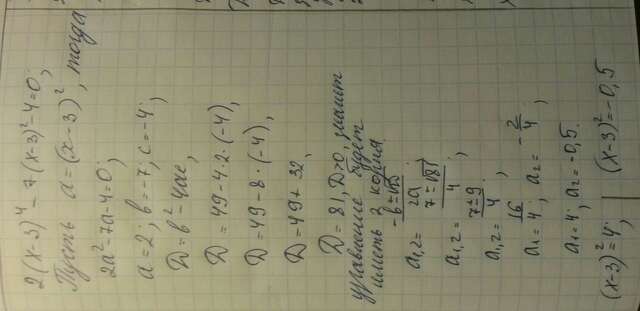 2(x-3)⁴-7(x-3)²-4=0;
Пусть a=(x-3)², тогда
2a²-7a-4=0;
a=2; b=-7; c=-4;
D=b²-4ac;
D=49-4·2·(-4);
D=49-8·(-4);
D=49+32;
D=81, D>0, значит
уравнение будет
иметь 2 корня.
a₁,₂ = (-b±√D)/2a
a₁,₂ = (7±√81)/4;
a₁,₂ = (7±9)/4;
a₁ = 16/4; a₂ = -2/4;
a₁=4; a₂=-0,5.
(x-3)²=4; (x-3)²=-0,5